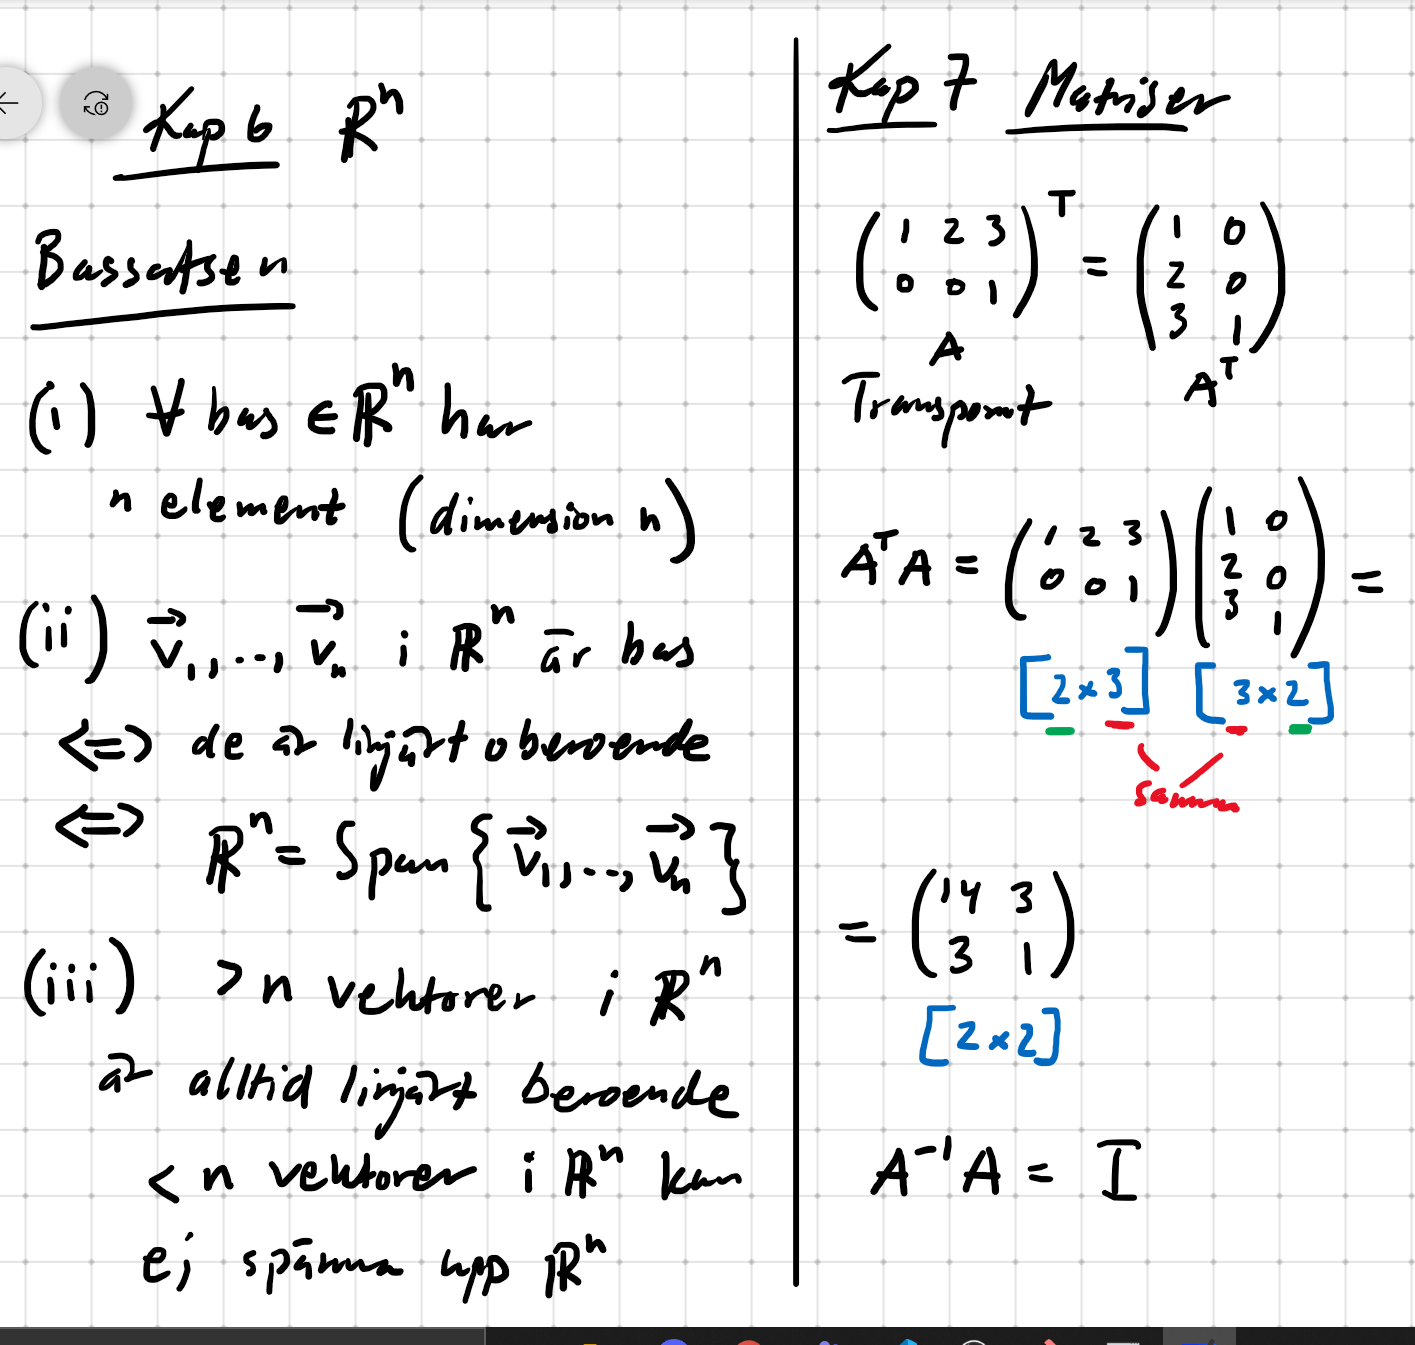 Kap 6 ℝⁿ
Bassatsen
(i) ∀ bas ∈ ℝⁿ har
n element (dimension n)
(ii) v⃗₁,..., v⃗ₙ i ℝⁿ är bas
⟺ de är linjärt oberoende
⟺ ℝⁿ = Span {v⃗₁,..., v⃗ₙ}
(iii) > n vektorer i ℝⁿ
är alltid linjärt beroende
< n vektorer i ℝⁿ kan
ej spänna upp ℝⁿ
Kap 7 Matriser
(1 2 3; 0 0 1)ᵀ = (1 0; 2 0; 3 1)
A Aᵀ
Transponat
AᵀA = (1 2 3; 0 0 1)(1 0; 2 0; 3 1) =
[2×3] [3×2]
samma
= (14 3; 3 1)
[2×2]
A⁻¹A = I